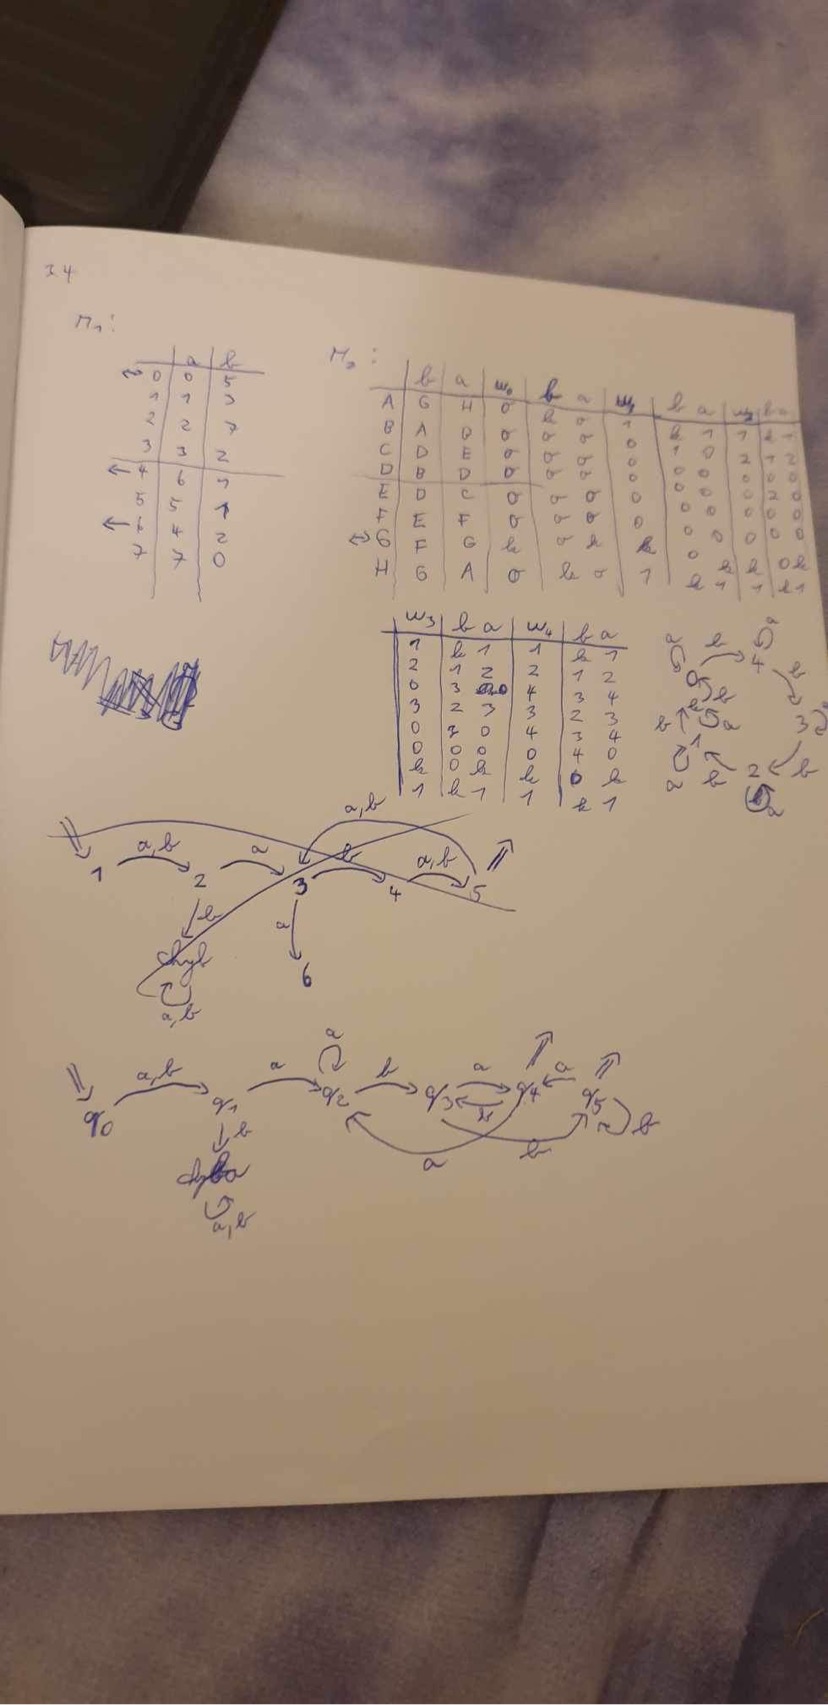 3.4
M₁:
a b
↔ 0 0 5
1 1 3
2 2 7
3 3 2
← 4 6 1
5 5 1
← 6 4 2
7 7 0
M₂:
b a w₀ b a w₁ b a w₂ b a
A G H 0 k 0 1 k 1 1 k 1
B A B 0 0 0 0 1 0 2 1 2
C D E 0 0 0 0 0 0 0
D B D 0 0 0 0 0 0 0 2 0
E D C 0 0 0 0 0 0 0 0 0
F E F 0 0 0 0 0 0 0 0 0
↔ G F G k 0 k k 0 k k 0 k
H G A 0 k 0 1 k 1 1 k 1
w₃ b a w₄ b a
1 k 1 1 k 1
2 1 2 2 1 2
0 3 0 4 3 4
3 2 3 3 2 3
0 3 0 4 3 4
0 0 0 0 4 0
k 0 k k 0 k
1 k 1 1 k 1
a b 4 a
0 b b
b k a 3
1 2 b
a b a
a,b
1 a,b 2 a 3 b 4 a,b 5
b a
chyb 6
a,b
a
q₀ a,b q₁ a q₂ b q₃ a q₄ a q₅
b b b
chyba a b
a,b